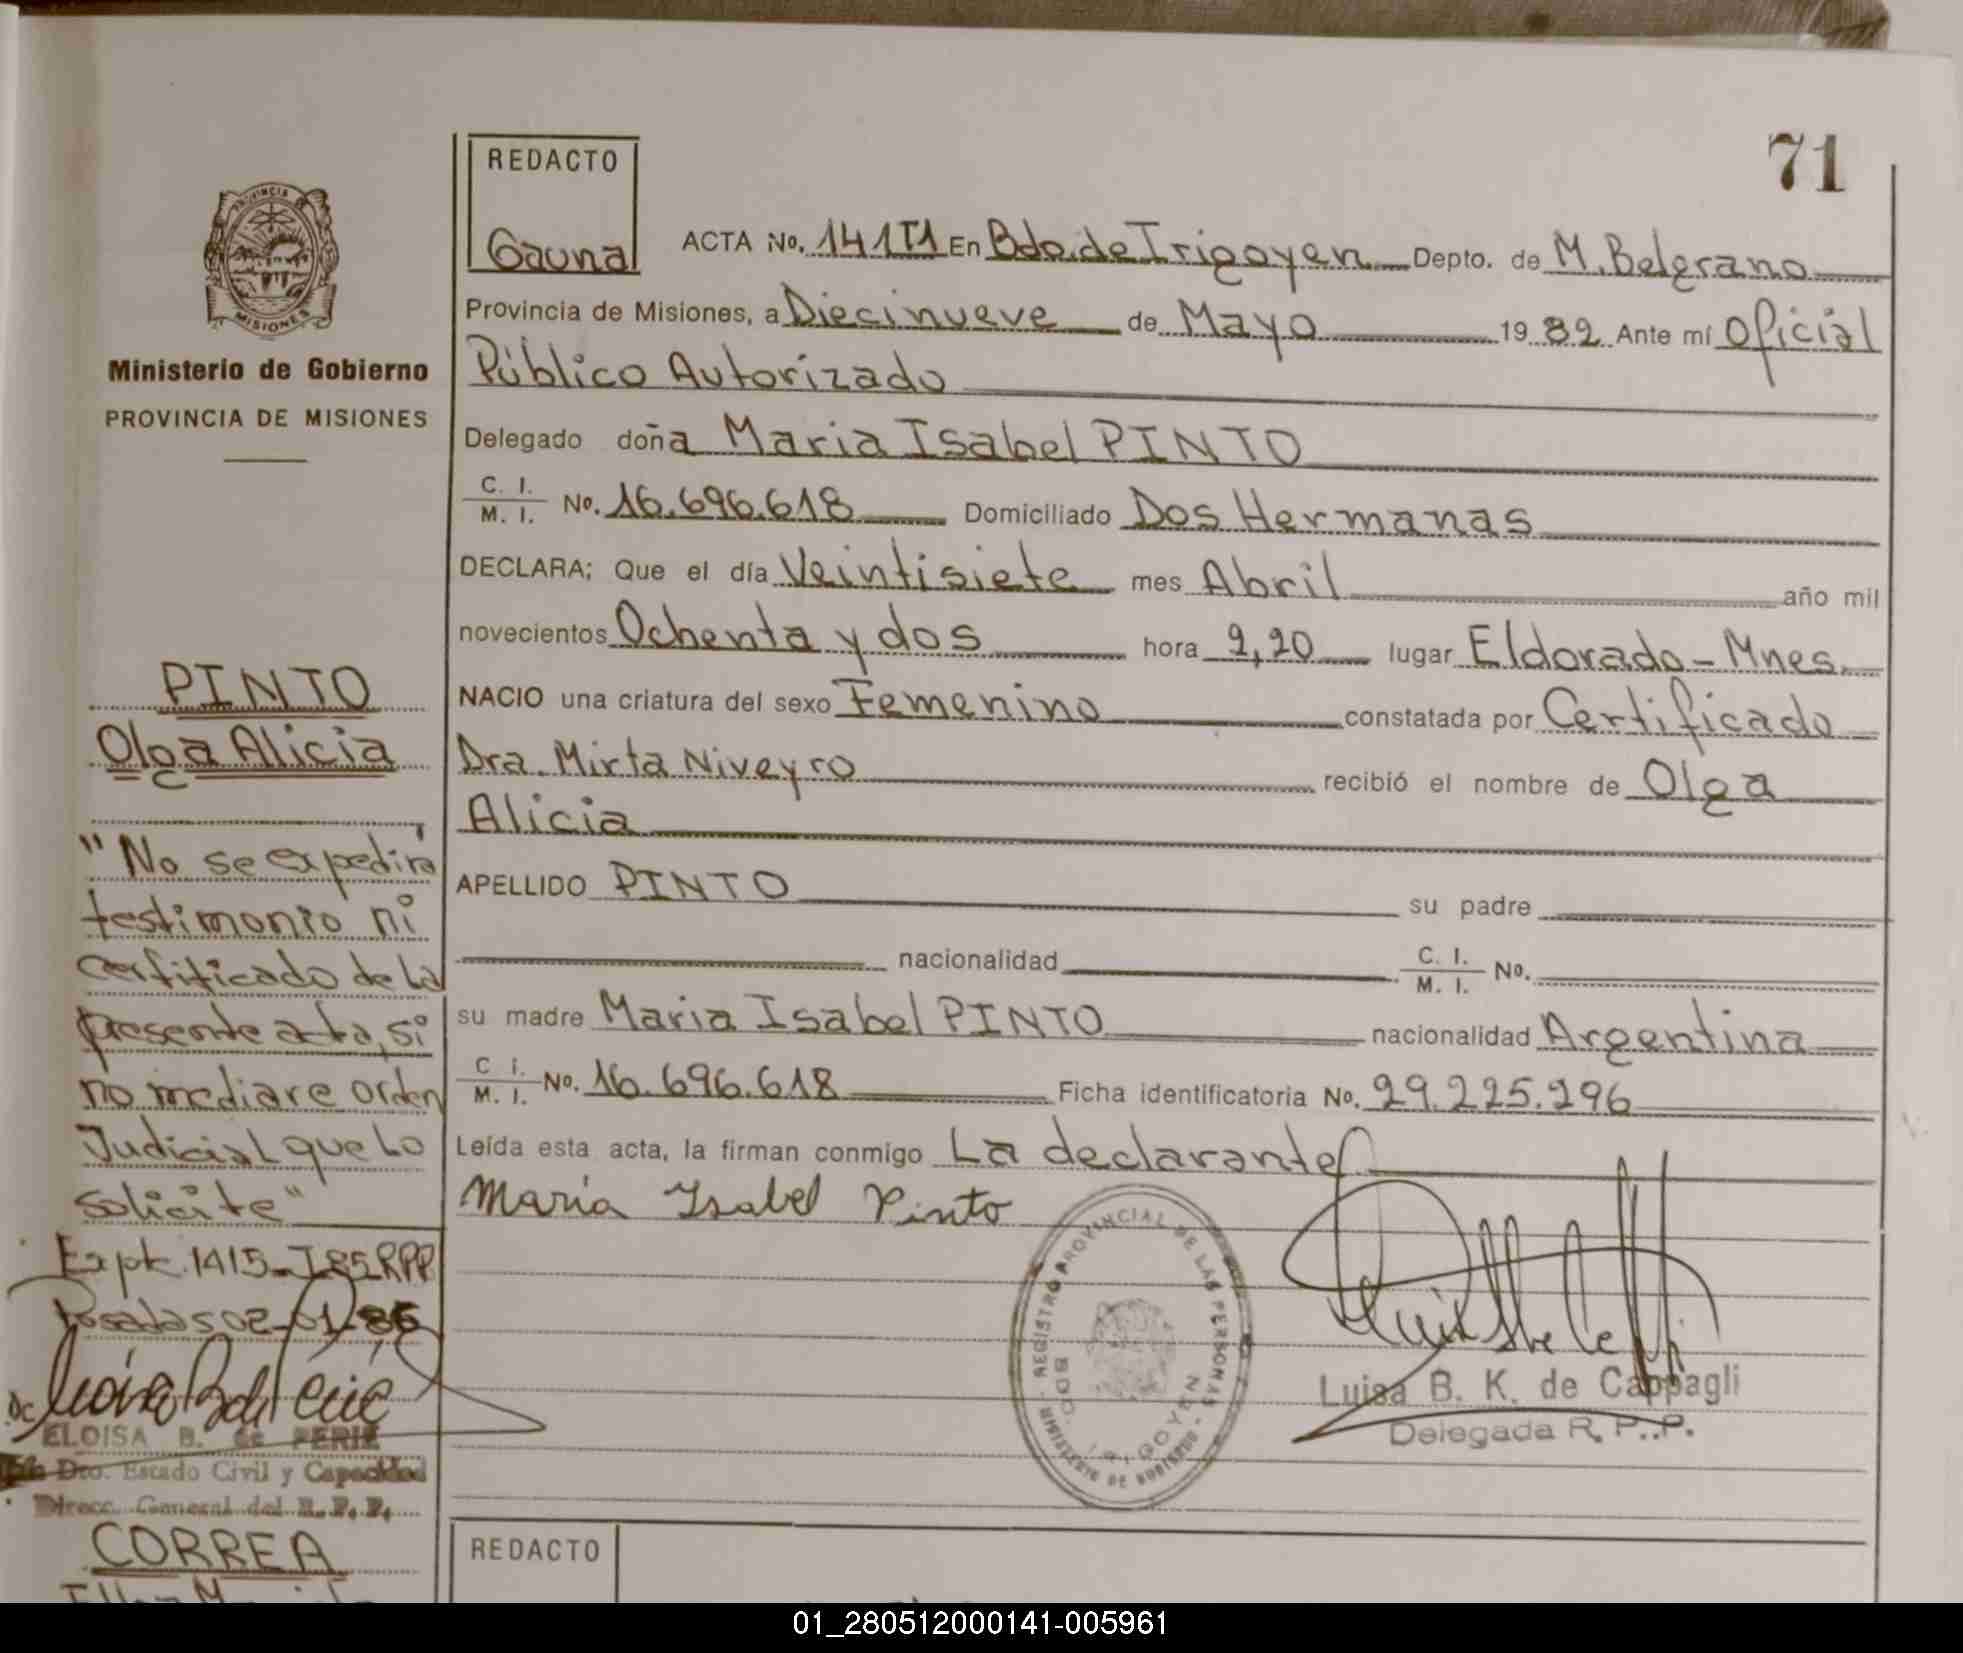 71
REDACTO
Gauna
ACTA No. 141T1 En Bdo. de Irigoyen Depto. de M. Belgrano
Provincia de Misiones, a Diecinueve de Mayo 19 82 Ante mí Oficial
Público Autorizado
Delegado doña Maria Isabel PINTO
C. I. / M. I. No. 16.696.618 Domiciliado Dos Hermanas
DECLARA; Que el día Veintisiete mes Abril año mil
novecientos Ochenta y dos hora 2,20 lugar Eldorado - Mnes.
NACIO una criatura del sexo Femenino constatada por Certificado
Dra. Mirta Niveyro recibió el nombre de Olga
Alicia
APELLIDO PINTO su padre
nacionalidad C. I. / M. I. No.
su madre Maria Isabel PINTO nacionalidad Argentina
C. I. / M. I. No. 16.696.618 Ficha identificatoria No. 29.225.296
Leída esta acta, la firman conmigo La declarante
Maria Isabel Pinto
REGISTRO PROVINCIAL DE LAS PERSONAS - MINISTERIO DE GOBIERNO
BDO. IRIGOYEN
Luisa B. K. de Cappagli
Delegada R. P. P.
PROVINCIA DE
MISIONES
Ministerio de Gobierno
PROVINCIA DE MISIONES
PINTO
Olga Alicia
"No se expedirá
testimonio ni
certificado de la
presente acta, si
no mediare orden
Judicial que lo
solicite"
Expte. 1415-I-85 RPP
Posadas 02-01-86
ELOISA B. de PERIE
Dto. Estado Civil y Capacidad
Direcc. General del R. P. P.
CORREA
REDACTO
01_280512000141-005961